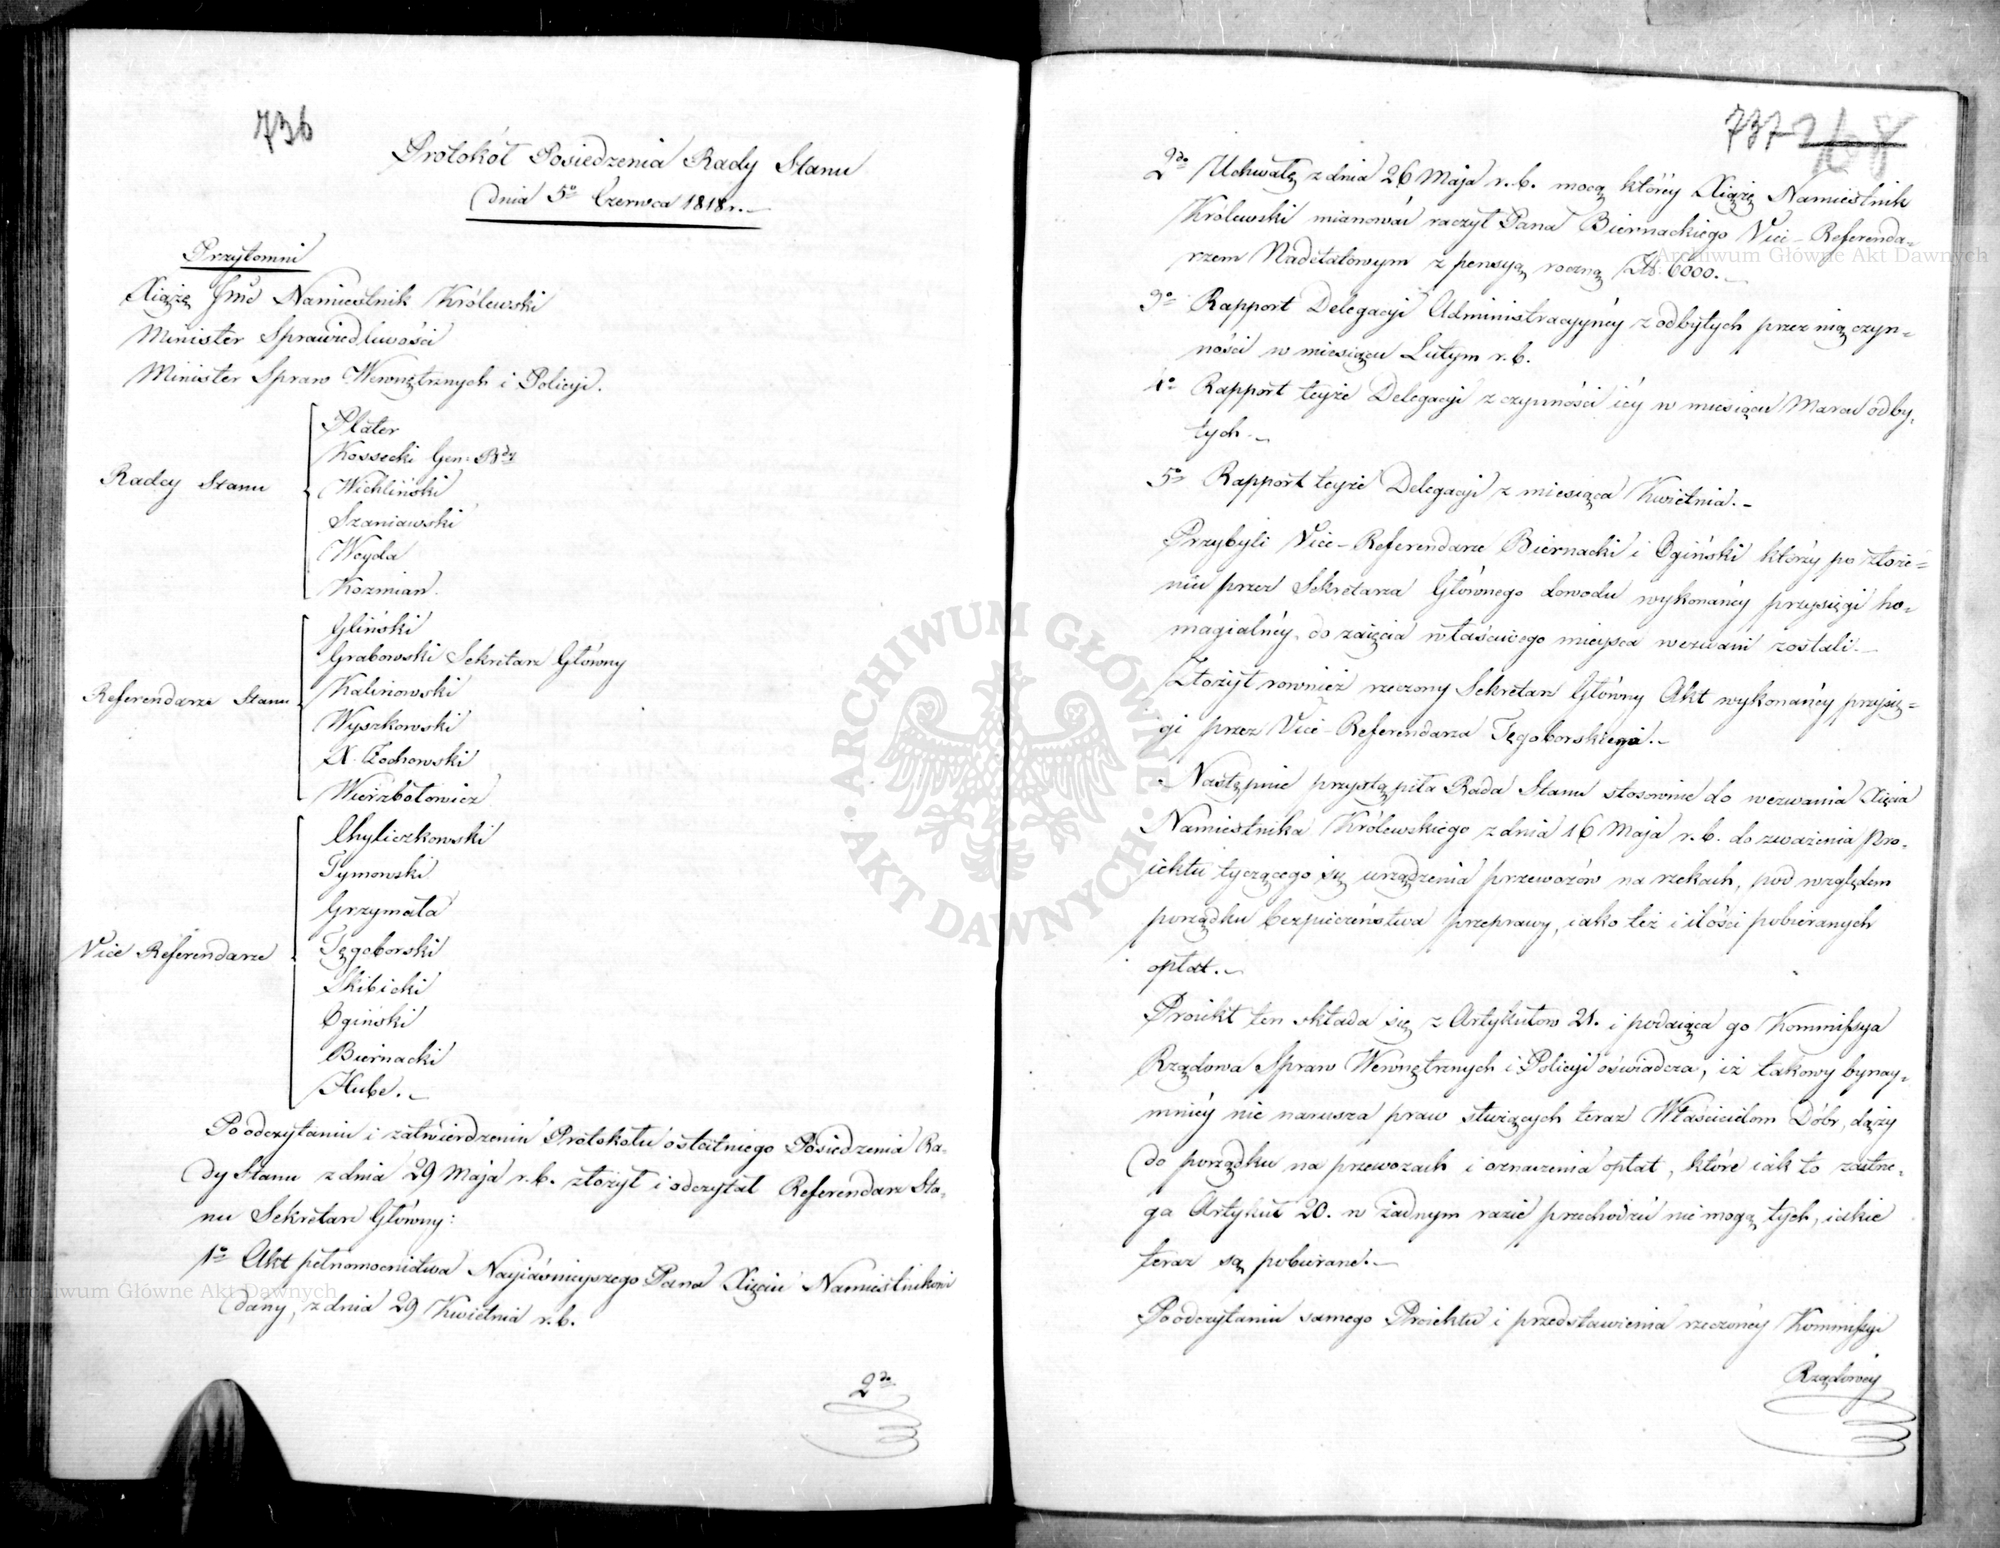 736
Protokół Posiedzenia Rady Stanu
dnia 5º Czerwca 1818 r.
Przytomni
Xiążę Jmć Namiestnik Królewski
Minister Sprawiedliwości
Minister Spraw Wewnętrznych i Policyi.
Radcy Stanu
Plater
Kossecki Gen: Bdy
Wichliński
Szaniawski
Woyda
Kozmian.
Referendarze Stanu
Gliński
Grabowski Sekretarz Główny
Kalinowski
Wyszkowski
X. Żochowski
Wierzbołowicz
Vice Referendarze
Chyliczkowski
Tymowski
Grzymała
Tęgoborski
Skibicki
Ogiński
Biernacki
Hube.
Po odczytaniu i zatwierdzeniu Protokołu ostatniego Posiedzenia Ra-
dy Stanu z dnia 29 Maja r. b. złożył i odczytał Referendarz Sta-
nu Sekretarz Główny:
1º Akt pełnomocnictwa Nayiaśnieyszego Pana Xięciu Namiestnikowi
dany, z dnia 29 Kwietnia r. b.
2do
737
2do Uchwałę z dnia 26 Maja r. b. mocą któréy Xiążę Namiestnik
Królewski mianować raczył Pana Biernackiego Vice-Referenda-
rzem Nadetatowym z pensyą roczną Zł. 6000.
3º Rapport Delegacyi Administracyynéy z odbytych przez nią czyn-
ności w miesiącu Lutym r. b.
4º Rapport teyże Delegacyi z czynności iéy w miesiącu Marcu odby-
tych.
5º Rapport teyże Delegacyi z miesiąca Kwietnia.
Przybyli Vice-Referendarze Biernacki i Ogiński którzy po złoże-
niu przez Sekretarza Głównego dowodu wykonanéy przysięgi ho-
magialnéy, do zaięcia właściwego mieysca wezwani zostali.
Złożył rownież rzeczony Sekretarz Główny Akt wykonanéy przysię-
gi przez Vice-Referendarza Tęgoborskiego.
Następnie przystąpiła Rada Stanu stosownie do wezwania Xięcia
Namiestnika Królewskiego z dnia 16 Maja r. b. do zważenia Pro-
iektu tyczącego się urządzenia przewozów na rzekach, pod względem
porządku bezpieczeństwa przeprawy, iako też i ilości pobieranych
opłat.
Proiekt ten składa się z Artykułów 21. i podaiąca go Kommissya
Rządowa Spraw Wewnętrznych i Policyi oświadcza, iż takowy bynay-
mniéy nie narusza praw służących teraz Właścicielom Dóbr, dąży
do porządku na przewozach i oznaczenia opłat, które iak to zastrze-
ga Artykuł 20. w żadnym razie przechodzić nie mogą tych, iakie
teraz są pobierane.
Po odczytaniu samego Proiektu i przedstawienia rzeczonéy Kommissyi
Rządowéy
ARCHIWUM GŁÓWNE AKT DAWNYCH
Archiwum Główne Akt Dawnych
Archiwum Główne Akt Dawnych